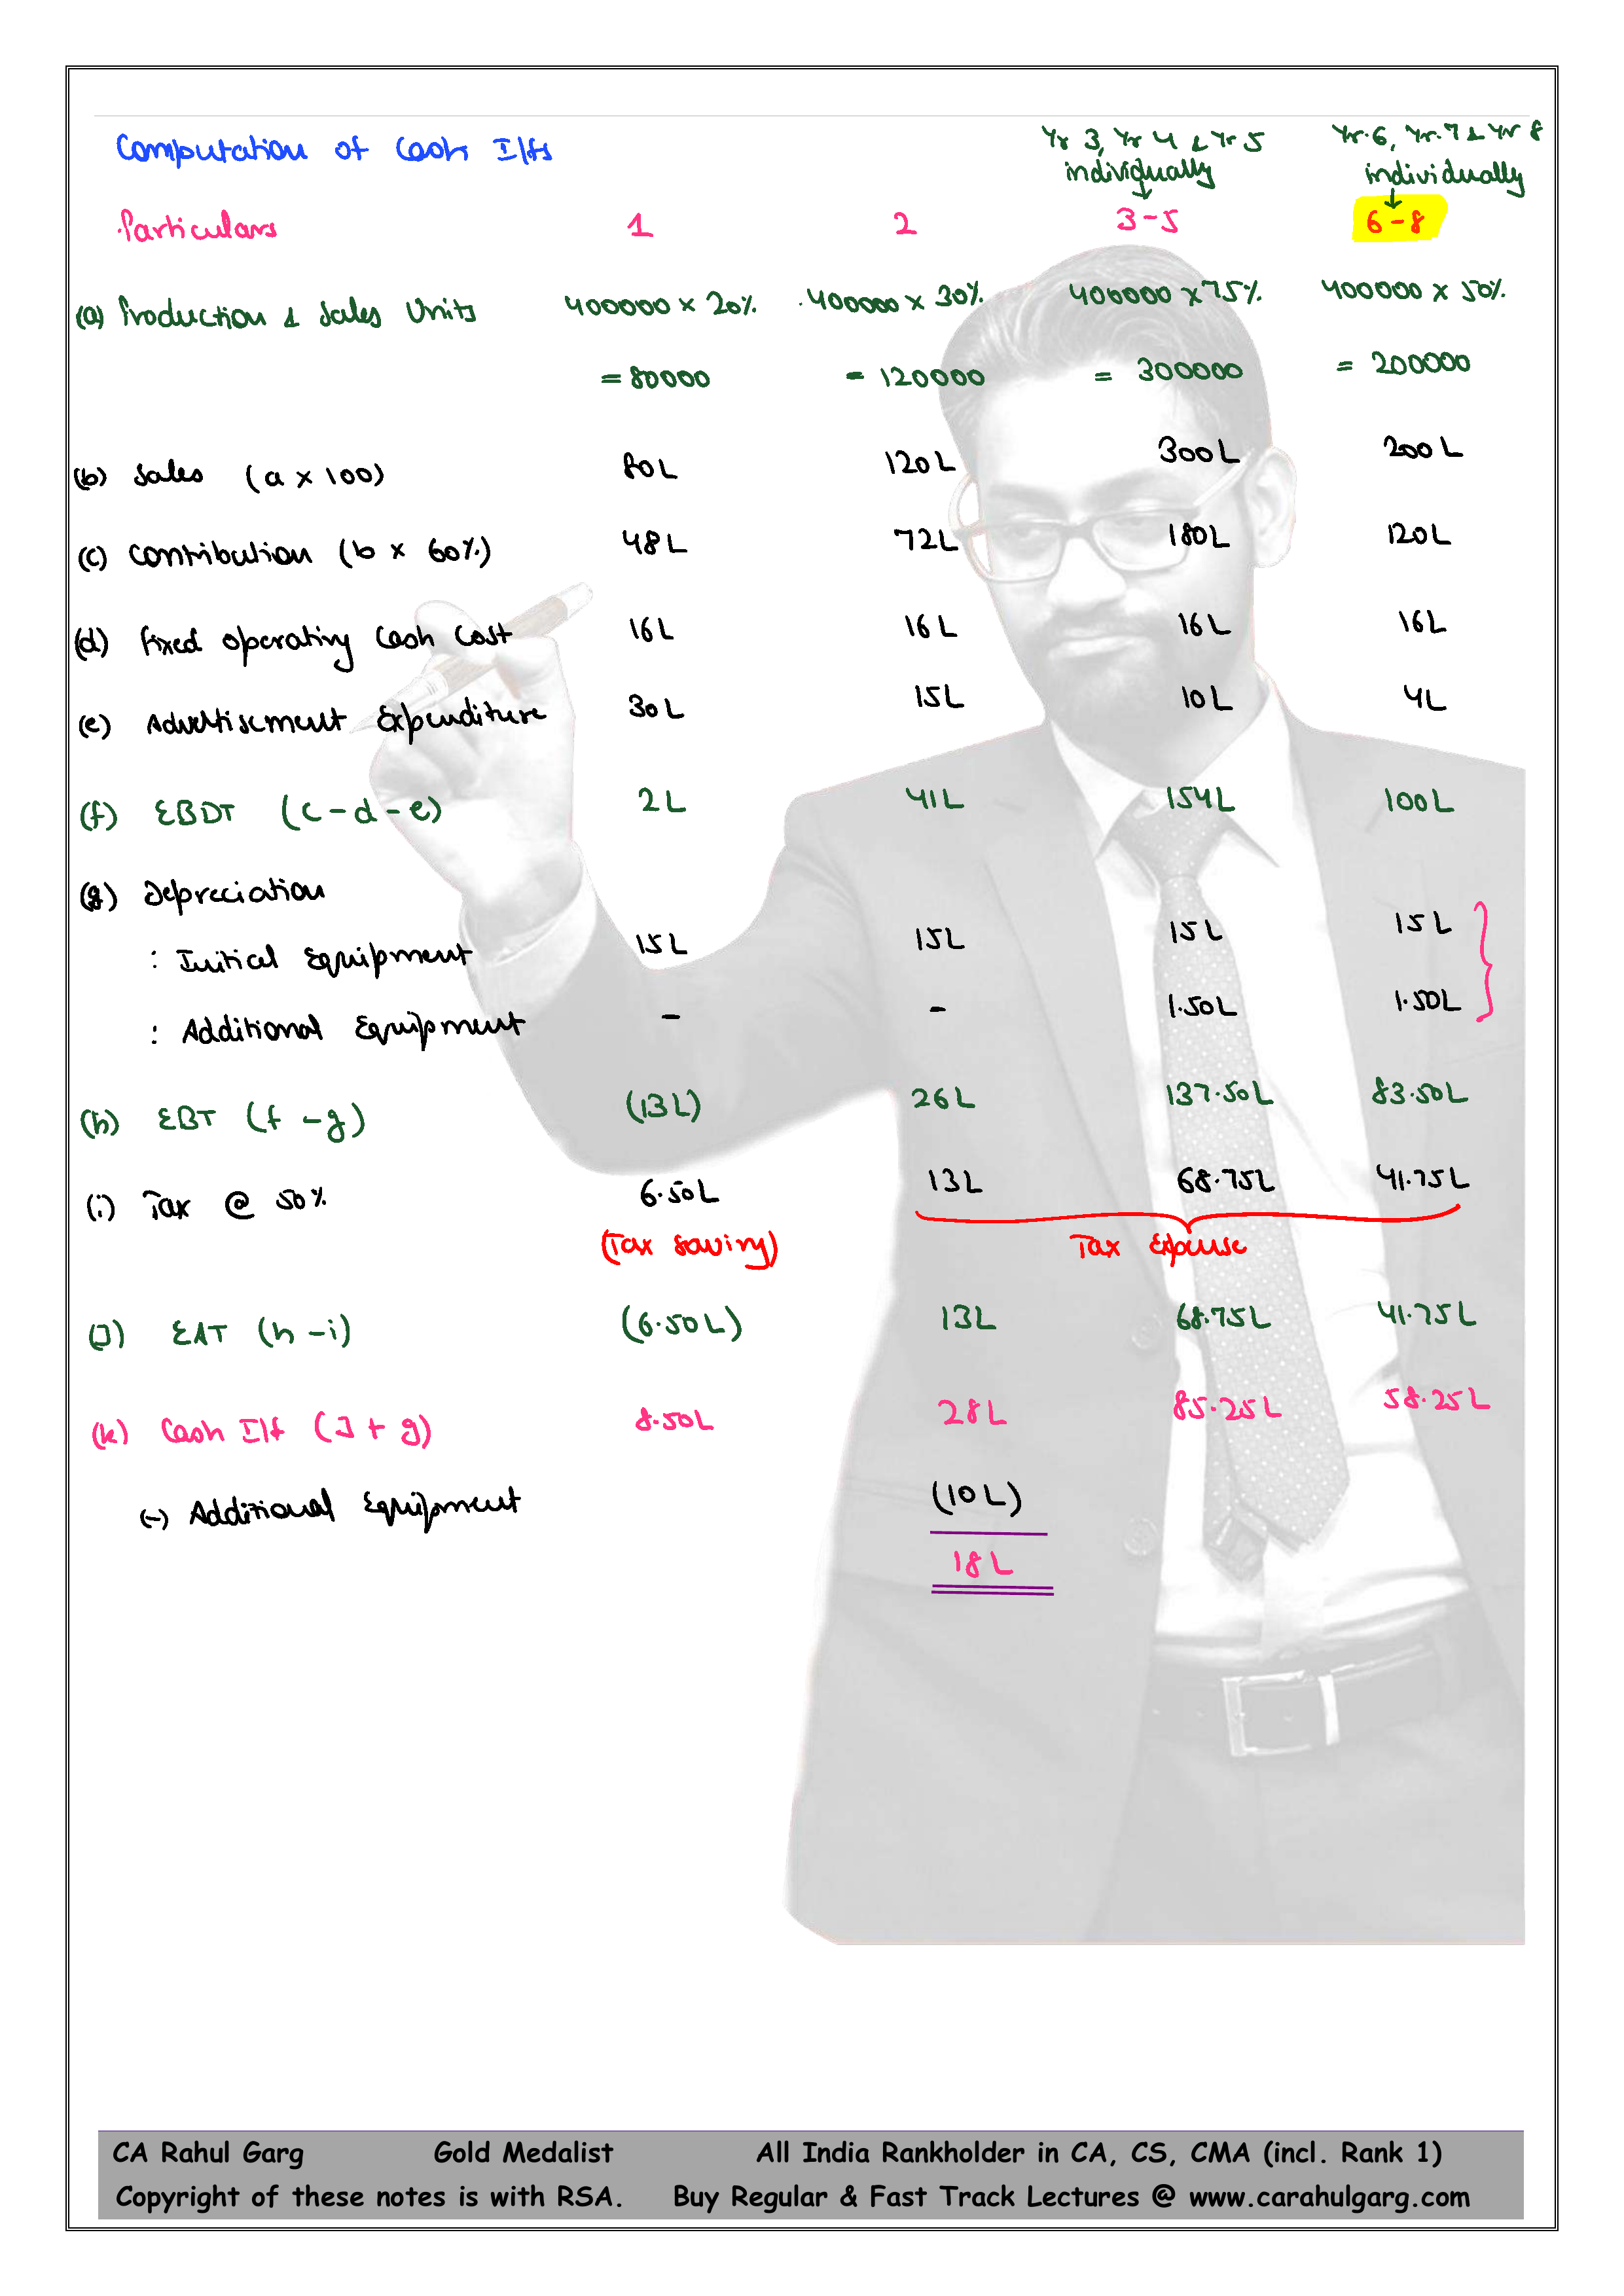 Yr 3, Yr 4 & Yr 5 Yr.6, Yr.7 & Yr 8
Computation of Cash I/fs individually individually
Particulars 1 2 3-5 6-8
(a) Production & Sales Units 400000 x 20% 400000 x 30% 400000 x 75% 400000 x 50%
= 80000 = 120000 = 300000 = 200000
(b) Sales (a x 100) 80L 120L 300L 200L
(c) Contribution (b x 60%) 48L 72L 180L 120L
(d) Fixed operating Cash Cost 16L 16L 16L 16L
(e) Advertisement Expenditure 30L 15L 10L 4L
(f) EBDT (c-d-e) 2L 41L 154L 100L
(g) Depreciation
: Initial Equipment 15L 15L 15L 15L
: Additional Equipment - - 1.50L 1.50L
(h) EBT (f-g) (13L) 26L 137.50L 83.50L
(i) Tax @ 50% 6.50L 13L 68.75L 41.75L
(Tax Saving) Tax Expense
(J) EAT (h-i) (6.50L) 13L 68.75L 41.75L
(k) Cash I/f (J+g) 8.50L 28L 85.25L 58.25L
(-) Additional Equipment (10L)
18L
CA Rahul Garg Gold Medalist All India Rankholder in CA, CS, CMA (incl. Rank 1)
Copyright of these notes is with RSA. Buy Regular & Fast Track Lectures @ www.carahulgarg.com